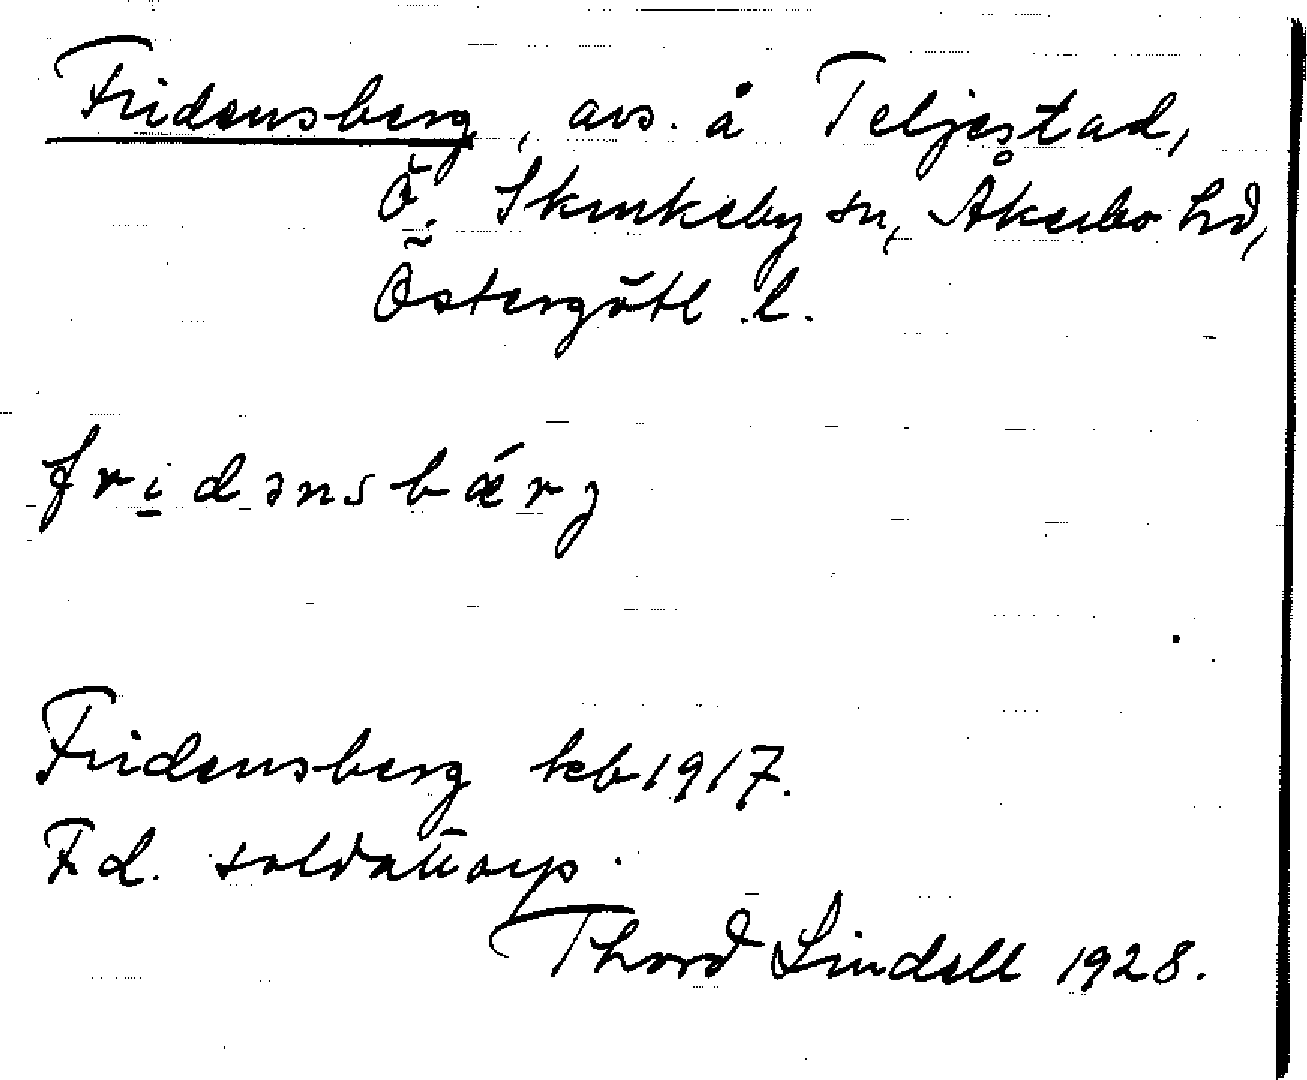 Fridensberg, avs. å Teljestad,
Ö. Skrukeby sn, Åkerbo hd,
Östergötl. l.
fridənsbǽrg
Fridensberg kb 1917.
F.d. soldattorp.
Thord Lindell 1928.